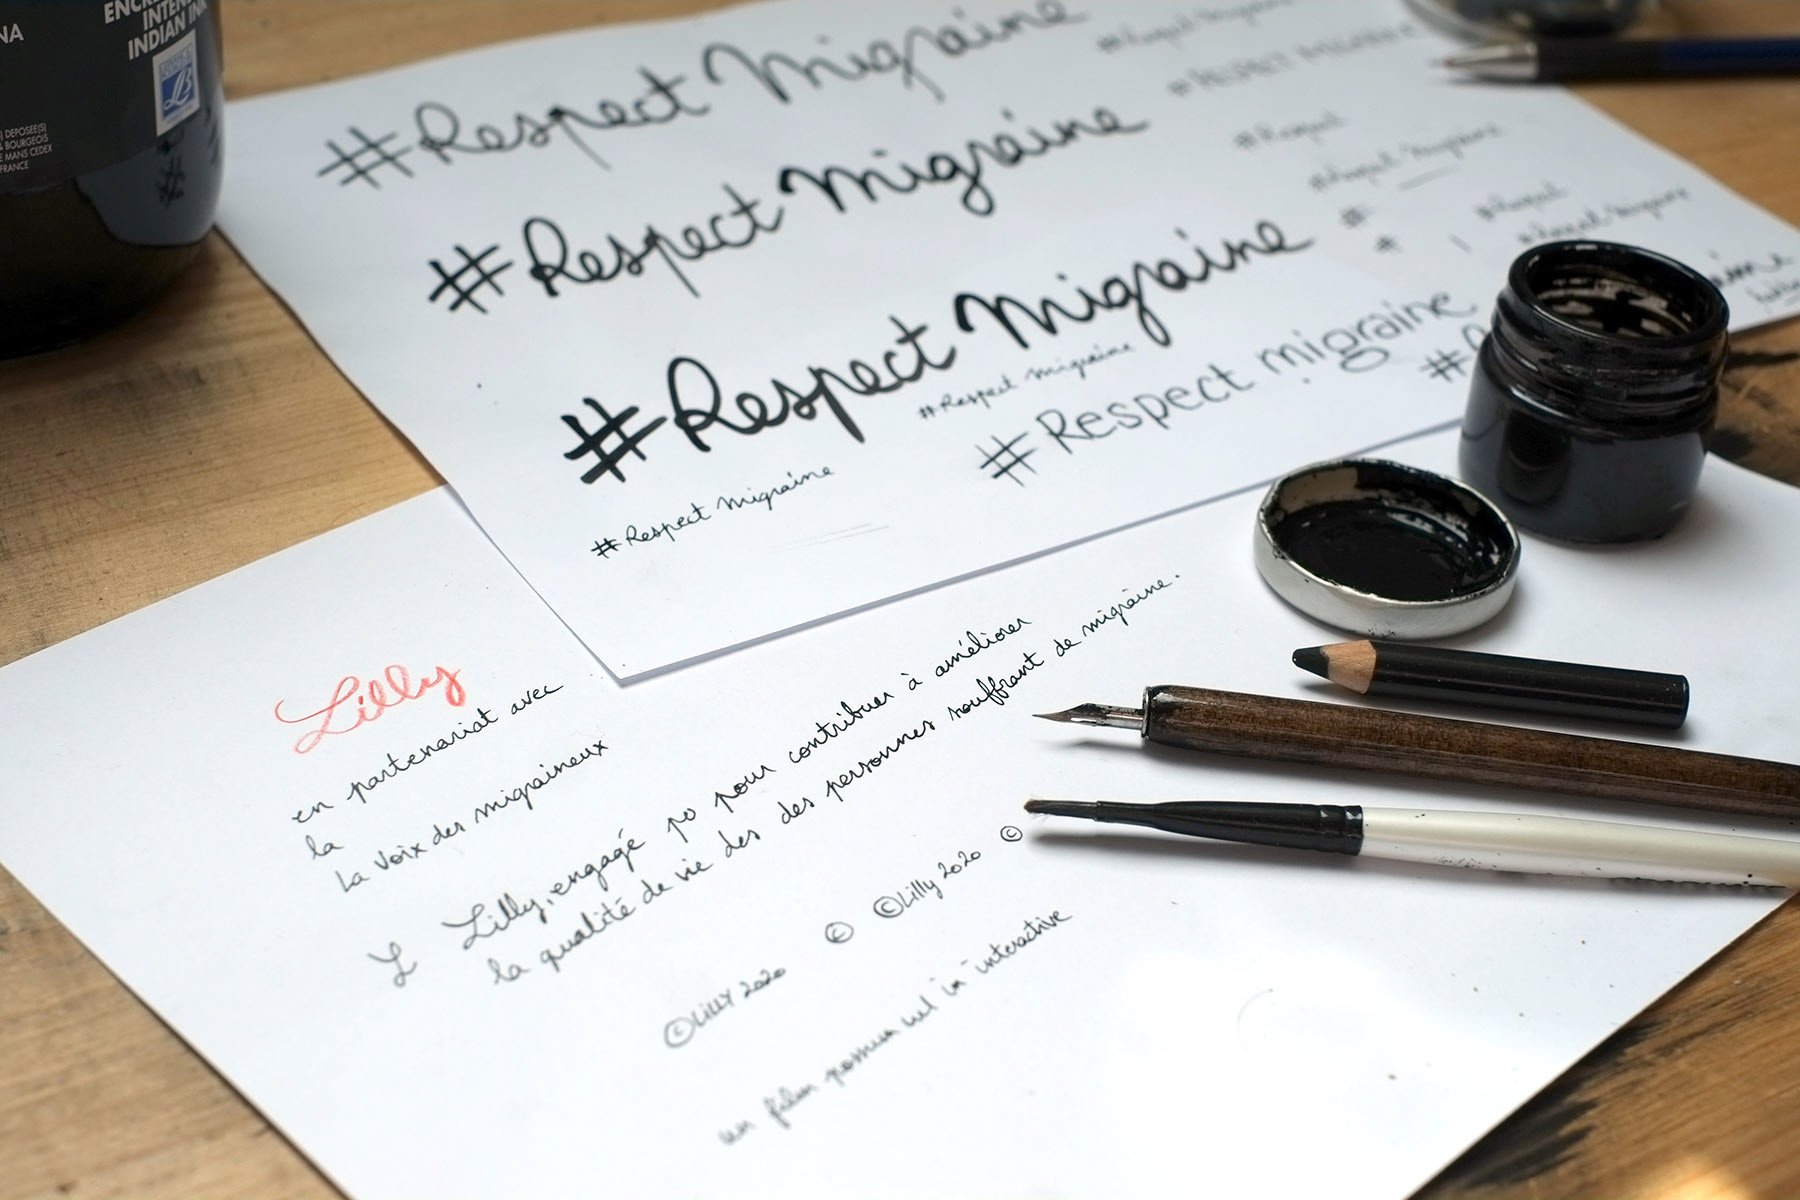 NA
ENCRE
INTENS
INDIAN INK
LB
) DEPOSEE(S)
& BOURGEOIS
E MANS CEDEX
FRANCE
#Respect Migraine
#Respect Migraine
#Respect Migraine
#Respect Migraine
#Respect migraine
#Respect Migraine
#Respect Migraine
#RESPECT MIGRAINE
#Respect
#Respect Migraine
#
#
#Respect
#Respect Migraine
#
Lilly
en partenariat avec
la
la voix des migraineux
L Lilly, engagé po pour contribuer à améliorer
la qualité de vie des des personnes souffrant de migraine.
©LILLY 2020 © ©Lilly 2020 ©
un film possum interactive